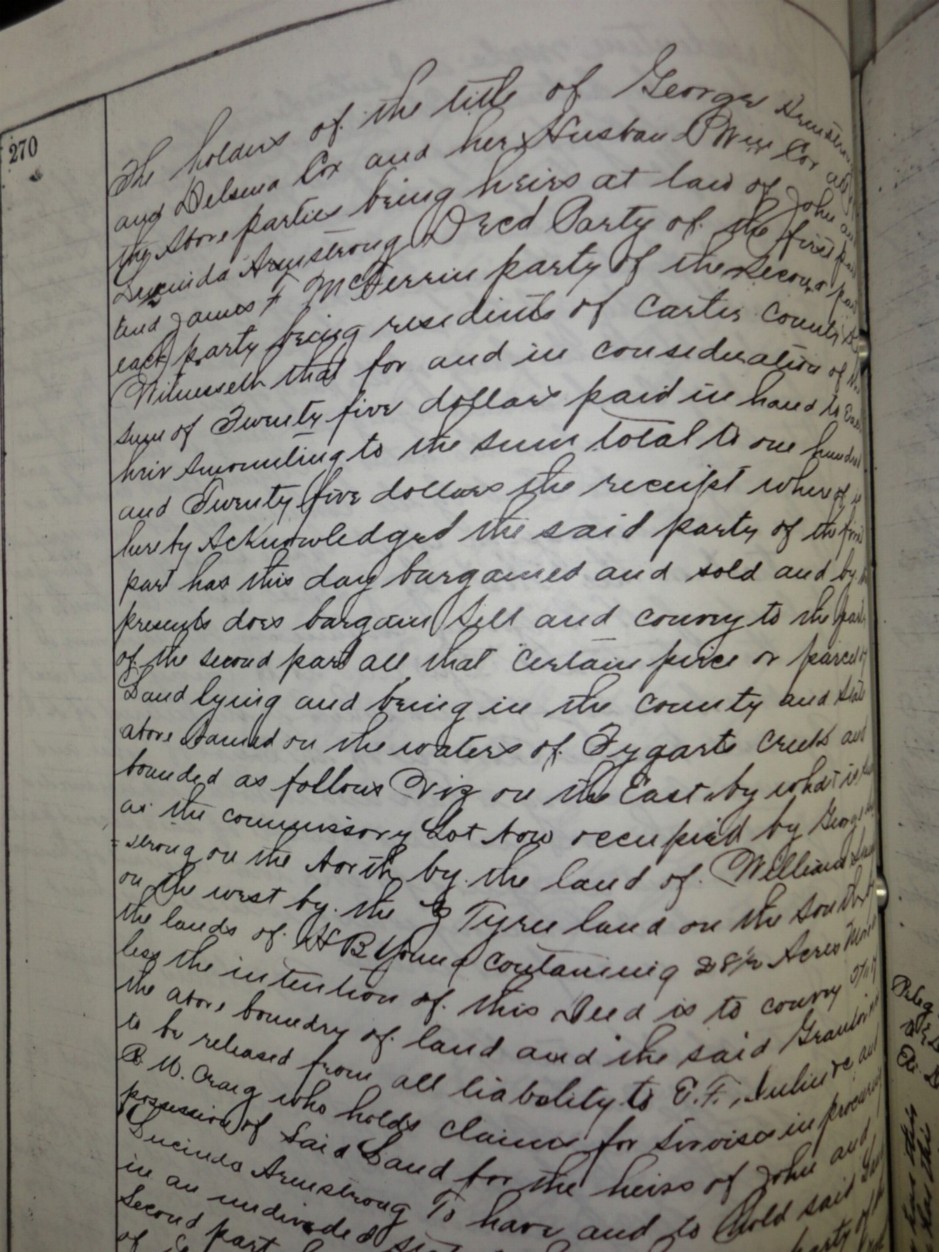 270
The holders of the title of George Armstrong
and Delsena Cox and her Husban Cox all
the above parties being heirs at law of John and
Lucinda Armstrong Decd Party of the first part
and James F McFerrin party of the second part
each party being residents of Carter County
Witnesseth that for and in consideration of the
sum of Twenty five dollars paid in hand to Each
heir Amounting to the sum total to one hundred
and Twenty five dollars the receipt where of is
hereby Acknowledged the said party of the first
part has this day bargained and sold and by
presents does bargain Sell and convey to the party
of the second part all that certain piece or parcel of
Land lying and being in the county and State
above named on the waters of Tygarts Creek and
bounded as follows Viz on the East by what is
as the commissory Lot now occupied by George
strong on the North by the land of William
on the west by the Tyree land on the South by
the lands of H B Young containing 28½ Acres More
less the intention of this Deed is to convey
the above boundry of land and the said
to be released from all liability to E. F. and
R. W. Craig who holds claims for Servises in
possession of Said Land for the heirs of John and
Lucinda Armstrong To have and to hold said
in an undivided
Second part party of the
of